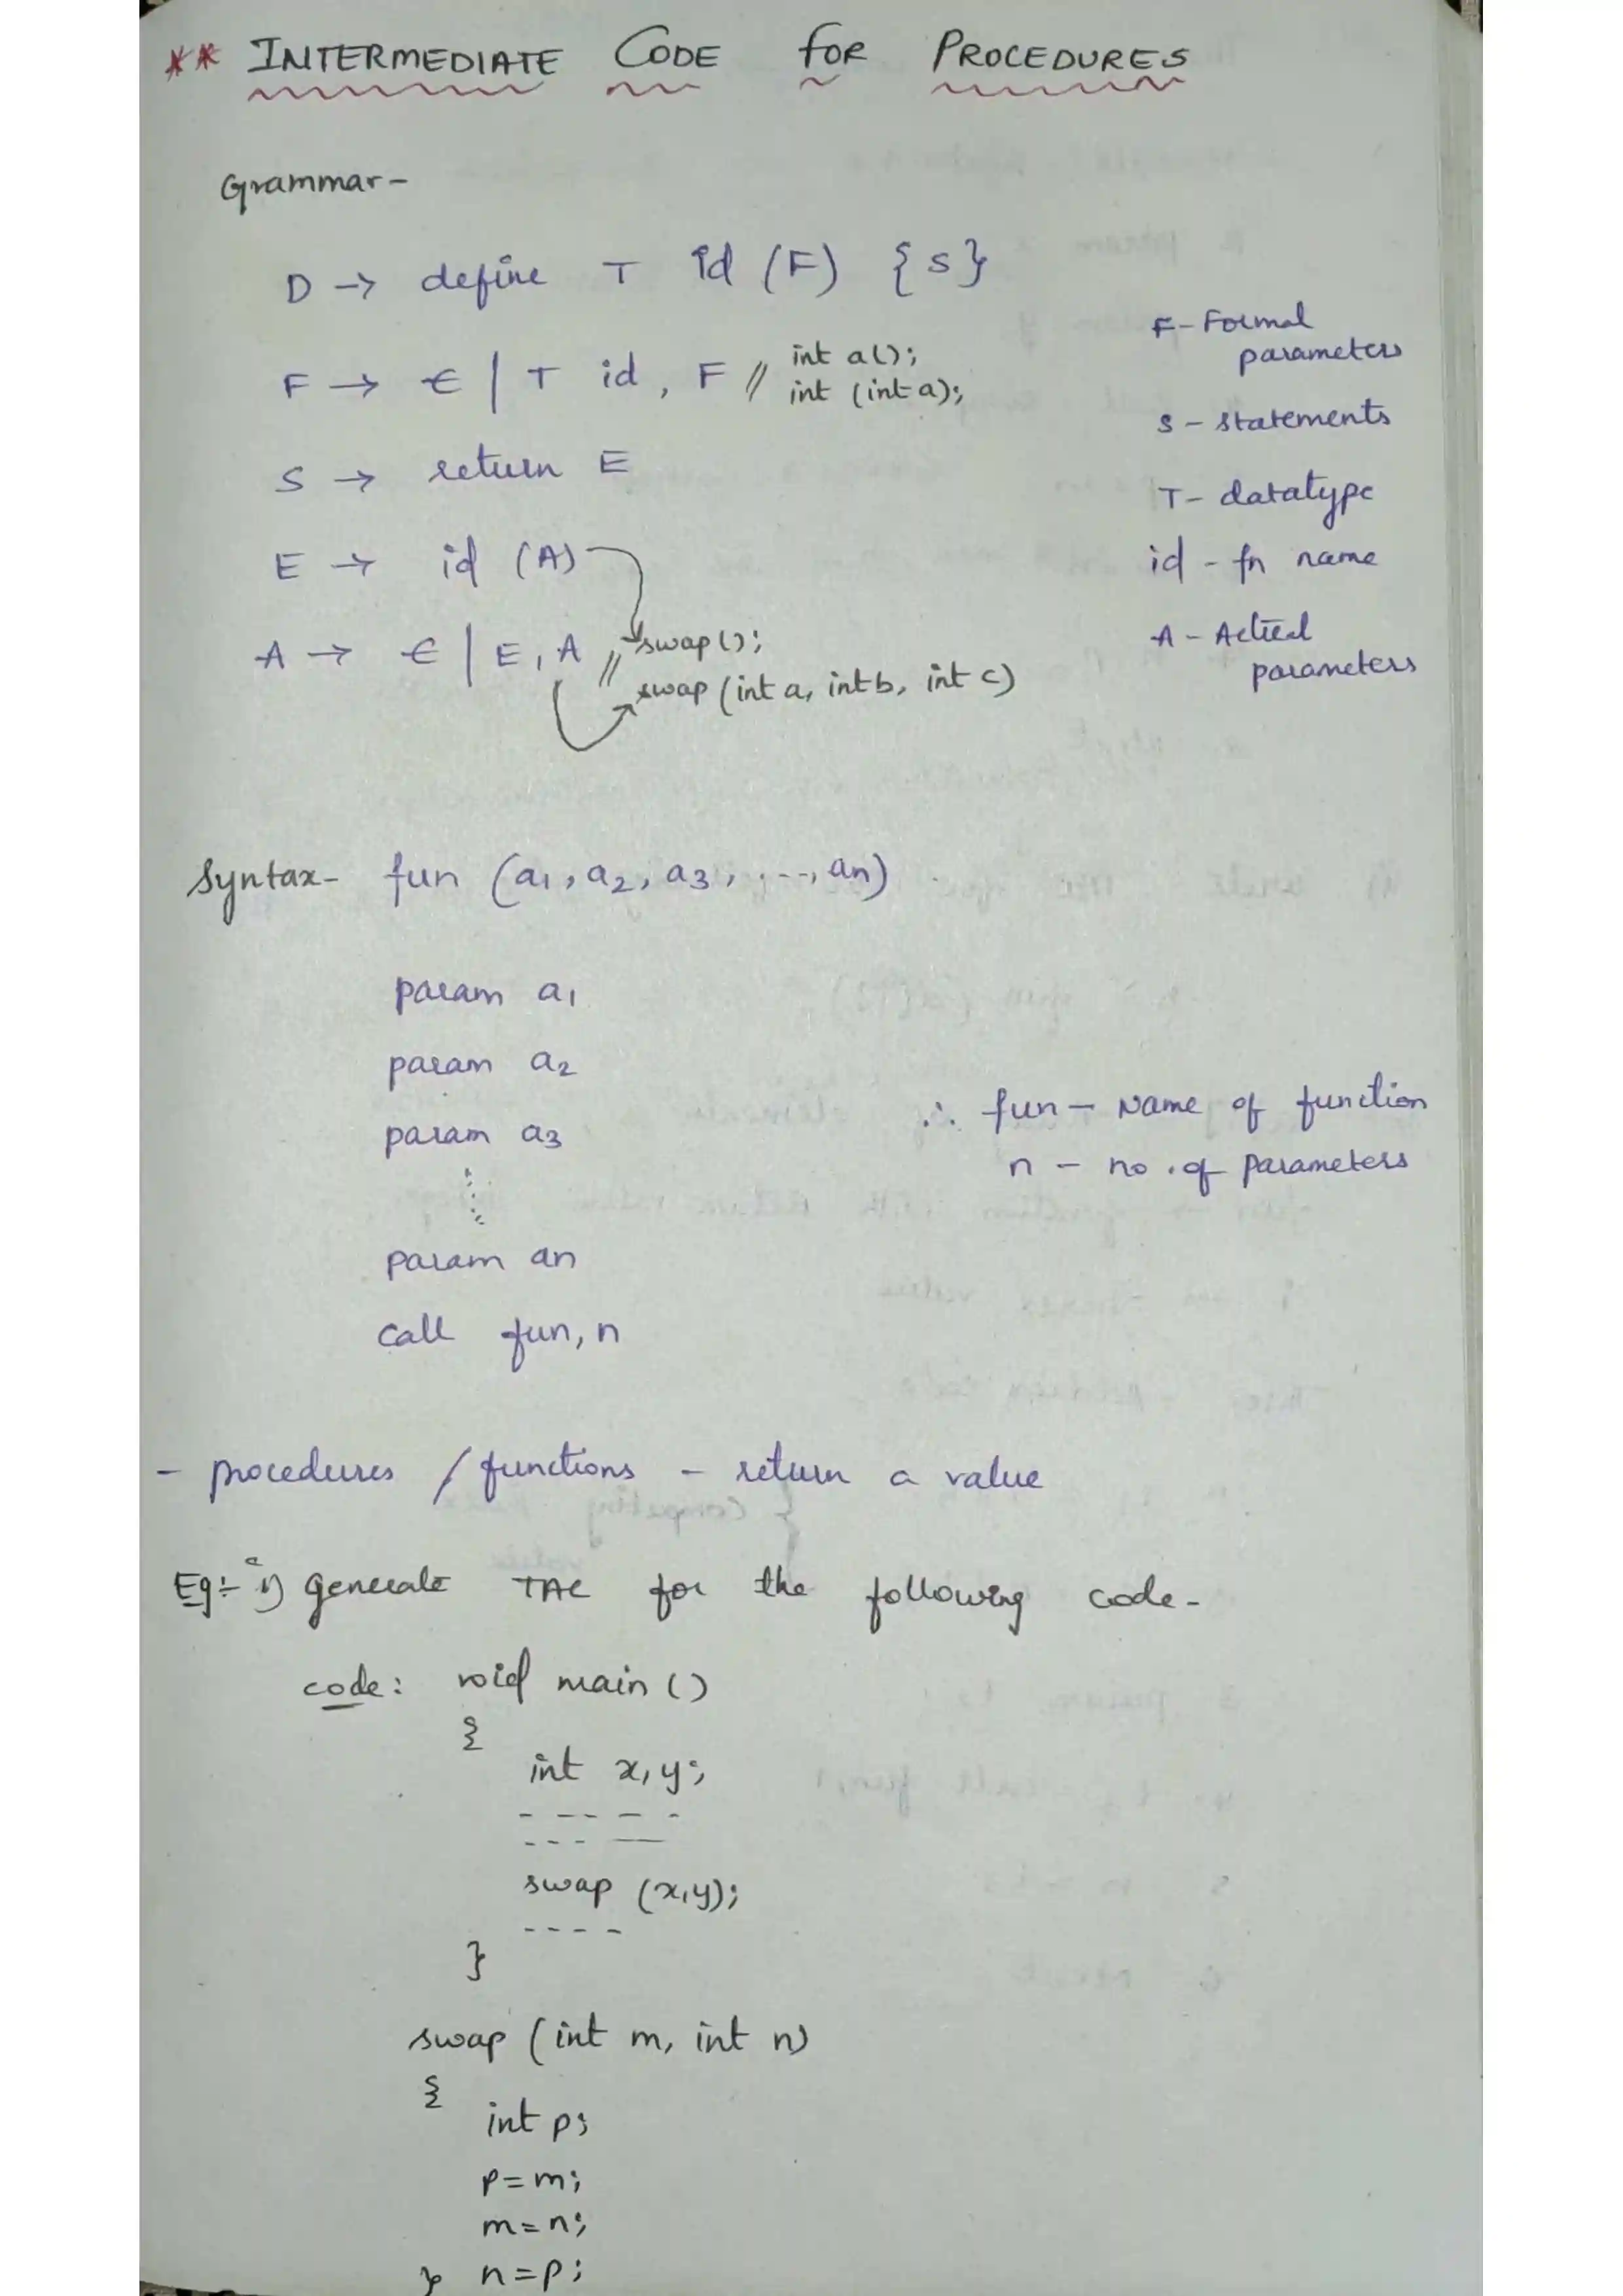 ** INTERMEDIATE CODE FOR PROCEDURES
Grammar -
D → define T id (F) {S}
F → ∈ | T id, F // int a(); 
int (int a);
S → return E
E → id (A)
A → ∈ | E, A // swap();
swap (int a, int b, int c)
F - Formal
parameters
S - statements
T - datatype
id - fn name
A - Actual
parameters
Syntax - fun (a1, a2, a3, ...., an)
param a1
param a2
param a3
param an
call fun, n
∴ fun - Name of function
n - no. of parameters
- procedures / functions - return a value
Eg:- 1) Generate TAC for the following code -
code: void main ()
{
int x, y;
swap (x, y);
}
swap (int m, int n)
{
int p;
p = m;
m = n;
} n = p;